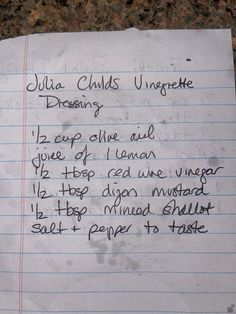 Julia Childs Vinegrette
Dressing
1/2 cup olive oil
juice of 1 lemon
1/2 tbsp red wine vinegar
1/2 tbsp dijon mustard
1/2 tbsp minced shallot
salt + pepper to taste